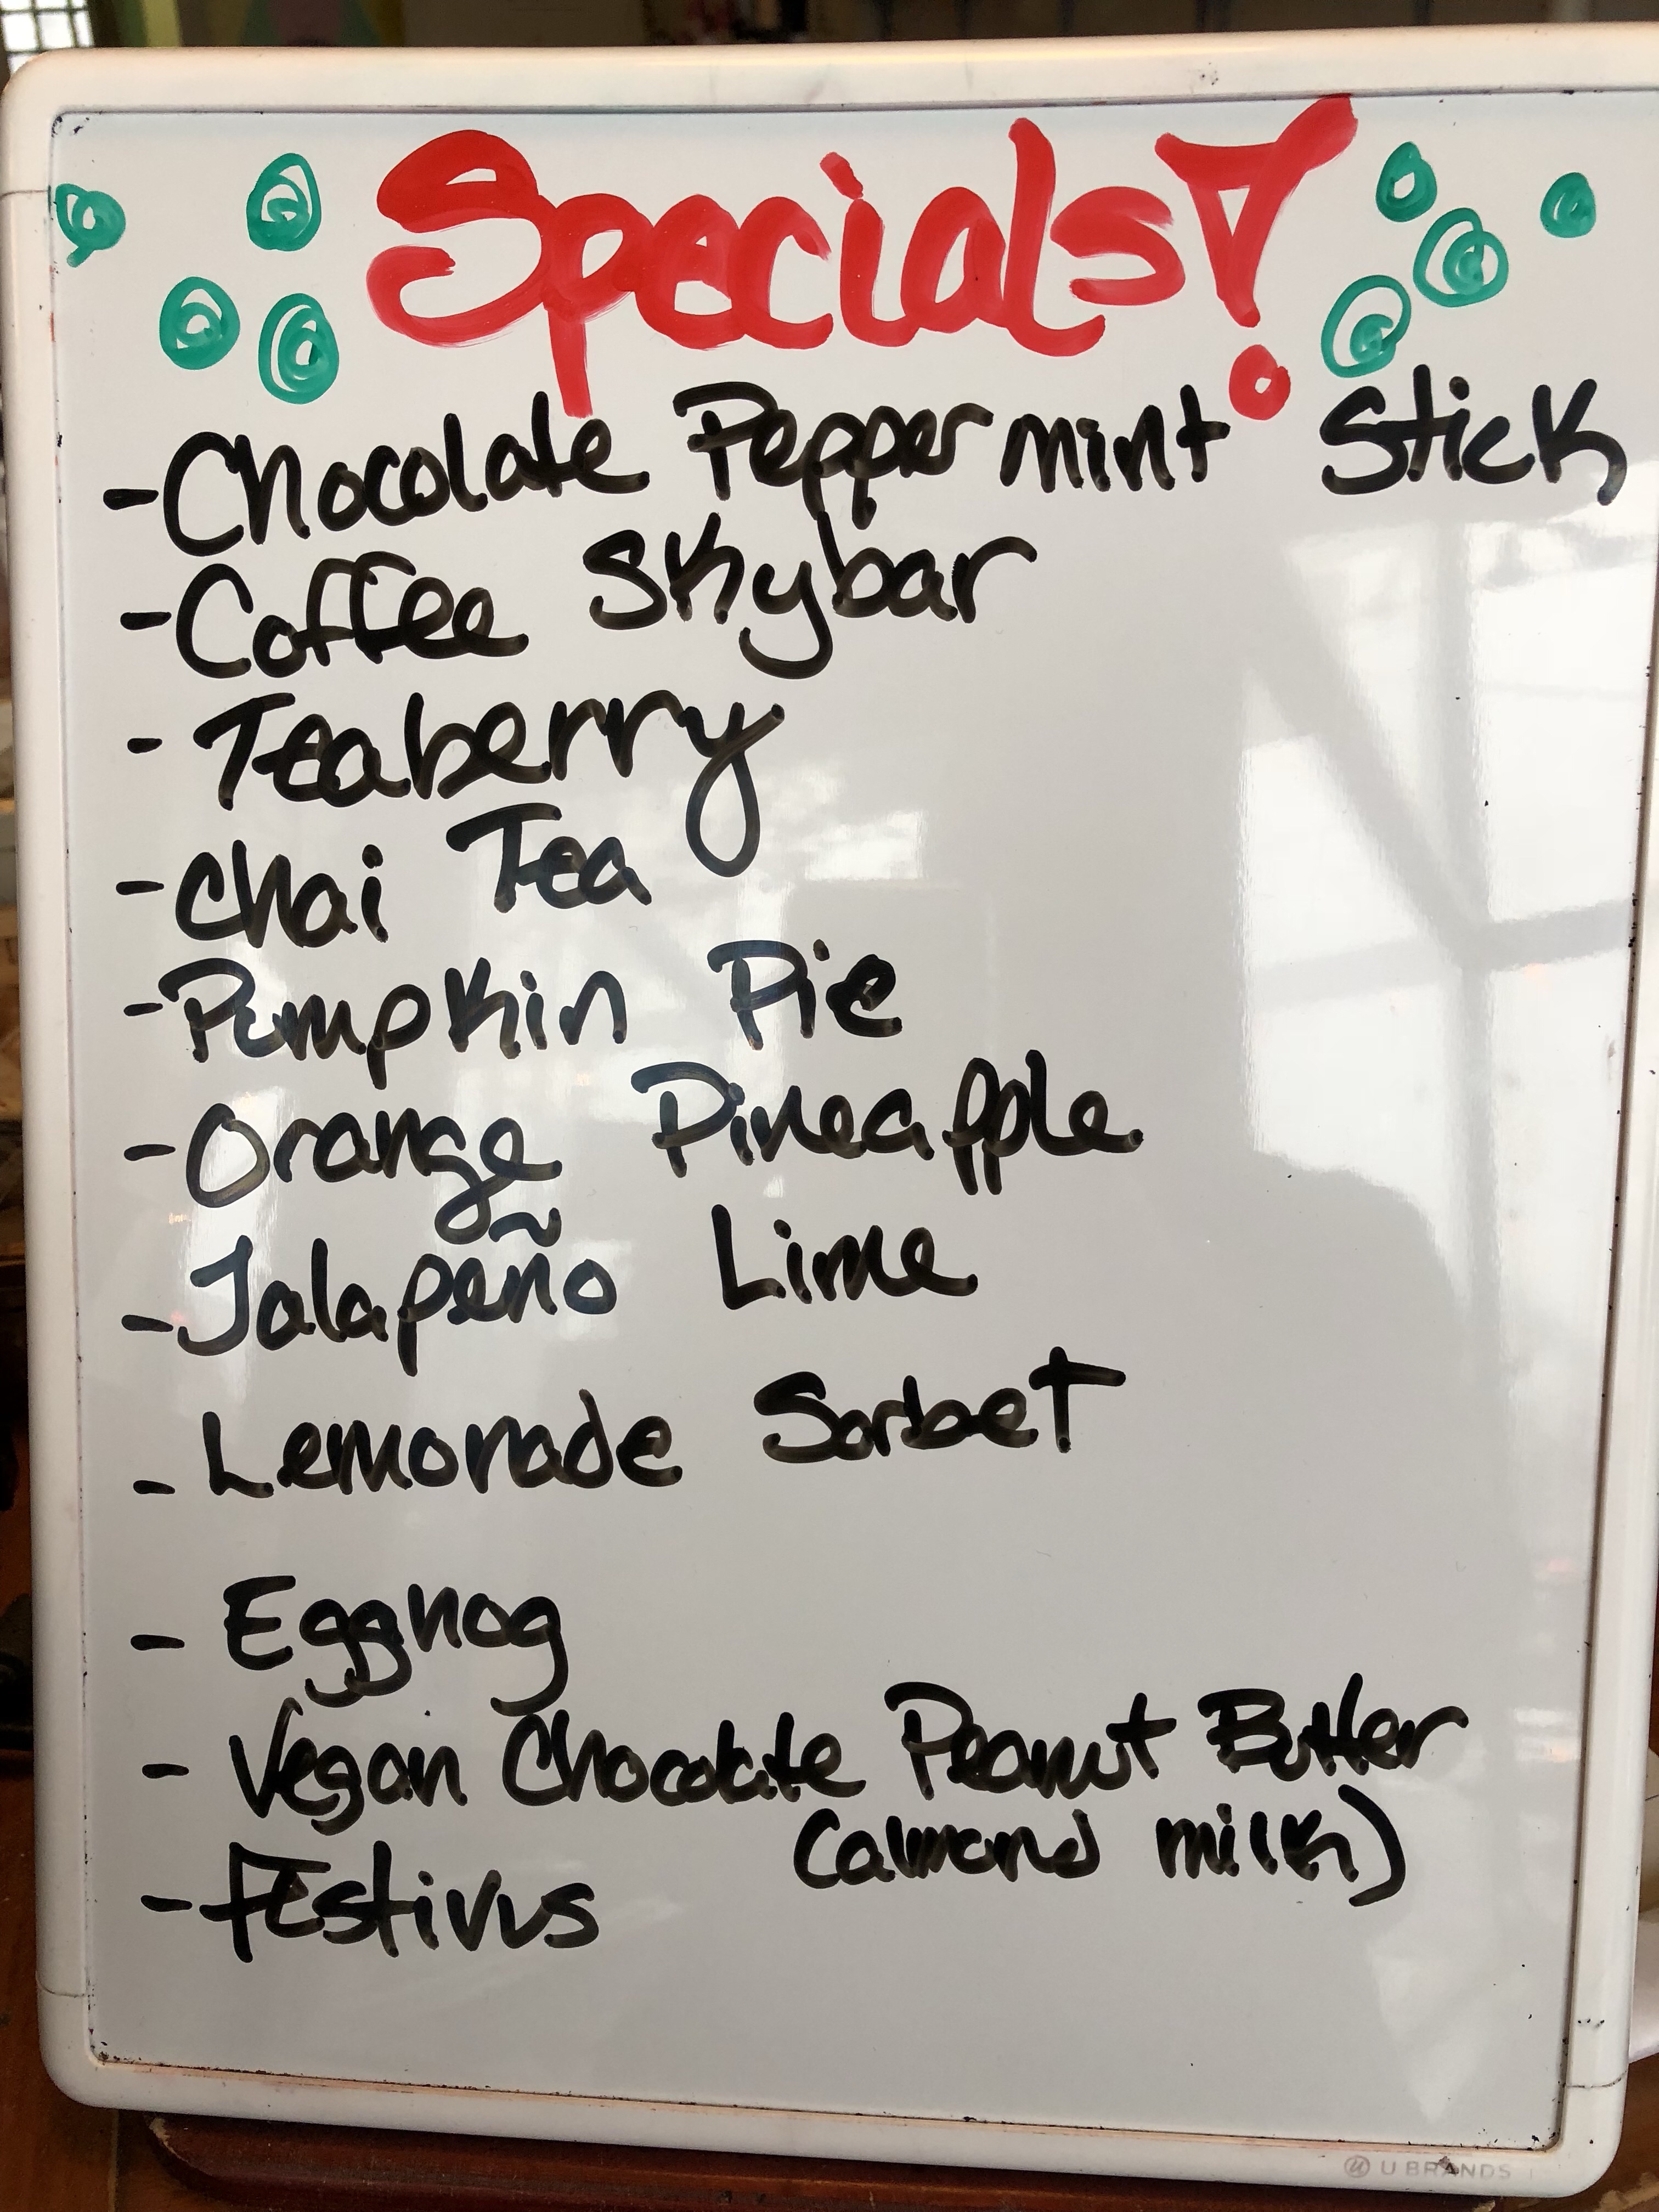 Specials!
-Chocolate Peppermint Stick
-Coffee Skybar
- Teaberry
-Chai Tea
-Pumpkin Pie
-Orange Pineapple
-Jalapeño Lime
- Lemonade Sorbet
- Eggnog
- Vegan Chocolate Peanut Butter
(almond milk)
-Festivus
U BRANDS